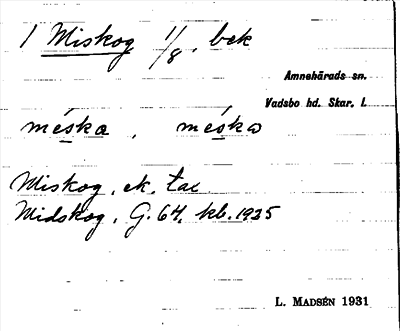 1 Miskog 1/8, bek
Amnehärads sn.
Vadsbo hd. Skar. l.
méska, méska
Miskog, ek, tax
Midskog, G. 64, kb. 1925
L. MADSÉN 1931